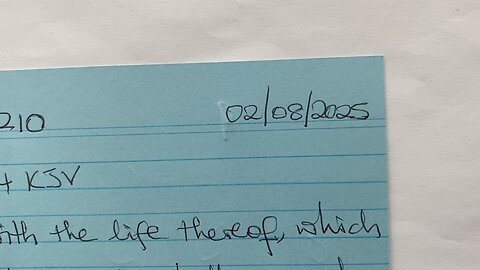 210 02/08/2025
4 KJV
ith the life thereof, which